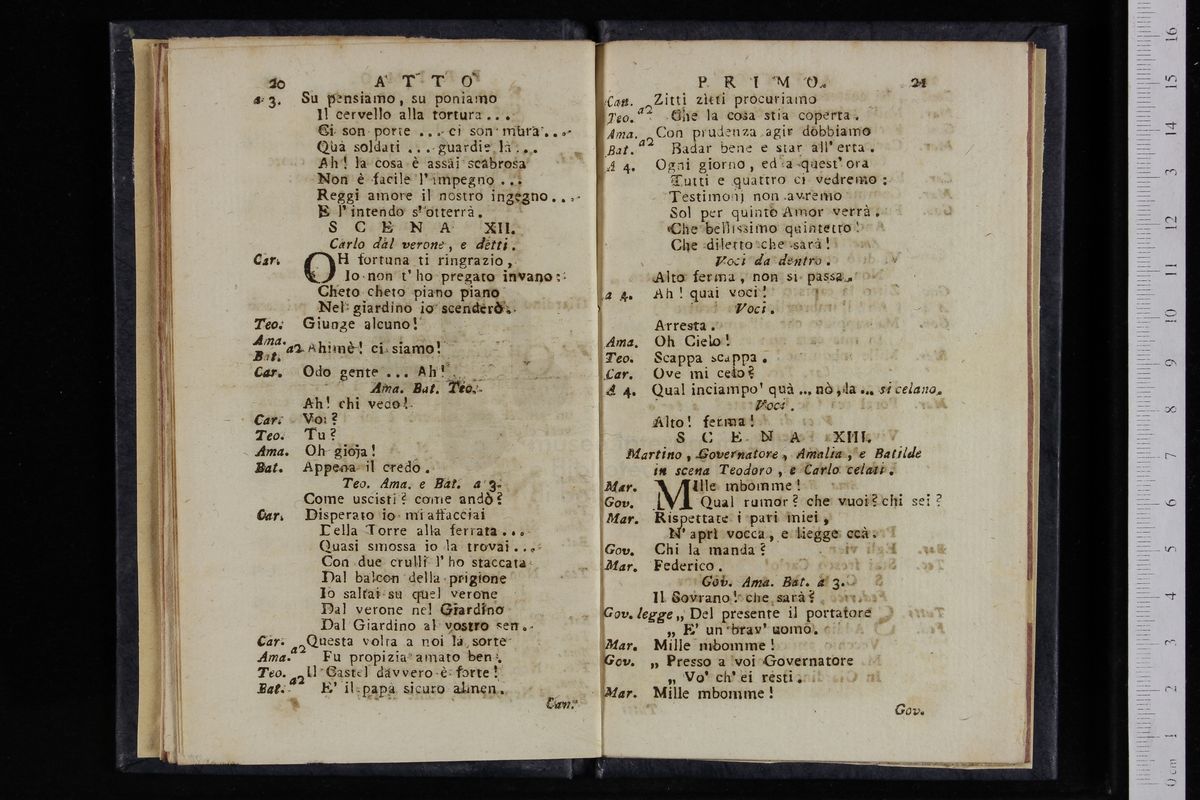 20 ATTO
a 3. Su pensiamo, su poniamo
Il cervello alla tortura...
Ci son porte ... ci son mura...
Quà soldati ... guardie là...
Ah! la cosa è assai scabrosa
Non è facile l'impegno...
Reggi amore il nostro ingegno...
E l'intendo s'otterrà.
SCENA XII.
Carlo dal verone, e detti.
Car. OH fortuna ti ringrazio,
Io non t'ho pregato invano:
Cheto cheto piano piano
Nel giardino io scenderò.
Teo. Giunge alcuno!
Ama. Bat. a2 Ahimè! ci siamo!
Car. Odo gente ... Ah!
Ama. Bat. Teo.
Ah! chi vedo!
Car. Voi?
Teo. Tu?
Ama. Oh gioja!
Bat. Appena il credo.
Teo. Ama. e Bat. a 3.
Come uscisti? come andò?
Car. Disperato io mi affacciai
Della Torre alla ferrata...
Quasi smossa io la trovai...
Con due crulli l'ho staccata
Dal balcon della prigione
Io saltai su quel verone
Dal verone nel Giardino
Dal Giardino al vostro sen.
Car. Ama. a2 Questa volta a noi la sorte
Fu propizia amato ben.
Teo. Bat. a2 Il Castel davvero è forte!
E' il papa sicuro almen.
Can.
PRIMO. 21
Can. Teo. a2 Zitti zitti procuriamo
Che la cosa stia coperta.
Ama. Bat. a2 Con prudenza agir dobbiamo
Badar bene e star all'erta.
A 4. Ogni giorno, ed a quest'ora
Tutti e quattro ci vedremo:
Testimonj non avremo
Sol per quinto Amor verrà.
Che bellissimo quintetto!
Che diletto che sarà!
Voci da dentro.
Alto ferma, non si passa.
a 4. Ah! quai voci!
Voci.
Arresta.
Ama. Oh Cielo!
Teo. Scappa scappa.
Car. Ove mi celo?
A 4. Qual inciampo' quà ..., nò, là ... si celano.
Voci.
Alto! ferma!
SCENA XIII.
Martino, Governatore, Amalia, e Batilde
in scena Teodoro, e Carlo celati.
Mar. Mille mbomme!
Gov. Qual rumor? che vuoi? chi sei?
Mar. Rispettate i pari miei,
N'aprì vocca, e liegge ccà.
Gov. Chi la manda?
Mar. Federico.
Gov. Ama. Bat. a 3.
Il Sovrano! che sarà?
Gov. legge „ Del presente il portatore
„ E' un brav' uomo.
Mar. Mille mbomme!
Gov. „ Presso a voi Governatore
„ Vo' ch'ei resti.
Mar. Mille mbomme!
Gov.